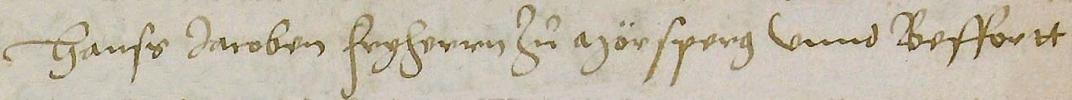 Hanss Jacoben fryherrn zů Mörsperg vnnd Beffortt